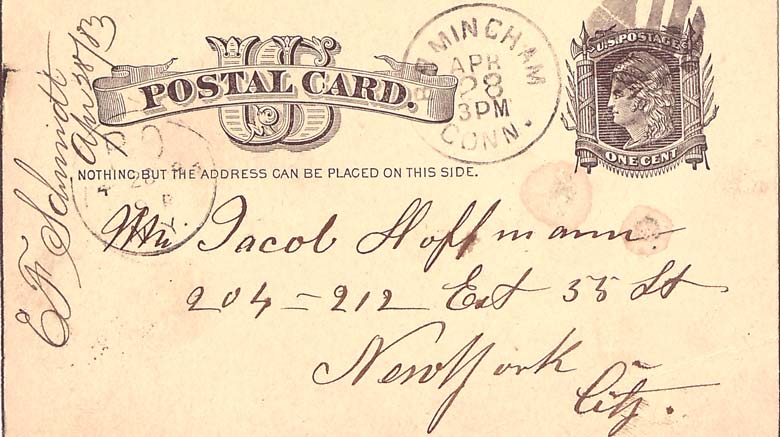 POSTAL CARD.
US
BIRMINGHAM
APR
28
3PM
CONN.
U.S. POSTAGE
ONE CENT
NOTHING BUT THE ADDRESS CAN BE PLACED ON THIS SIDE.
Mr. Jacob Hoffmann
204 = 212 Est 55 St
New York
City.
E F Schmidt
Apr 28/83